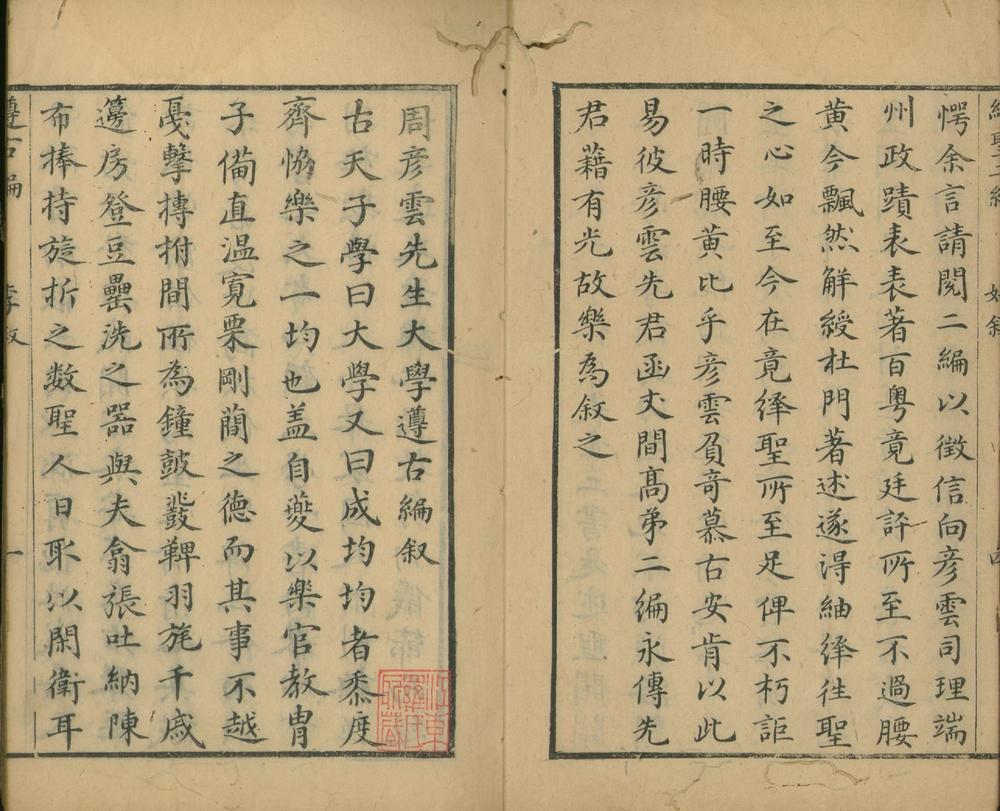 愕余言請閱二編以徵信向彥雲司理端
州政蹟表表著百粤竟廷評所至不過腰
黄今飄然觧綬杜門著述遂得紬繹徃聖
之心如至今在竟繹聖所至足俾不朽詎
一時腰黄比乎彥雲負竒慕古安肯以此
易彼彥雲先君函丈間髙弟二編永傳先
君藉有光故樂為叙之
周彥雲先生大學遵古編叙
古天子學曰大學又曰成均均者黍度
齊恊樂之一均也盖自夔以樂官教胄
子備直温寛栗剛簡之德而其事不越
戞擊搏拊間所為鐘鼓鼗鞞羽旄干戚
籩房登豆罍洗之器與夫翕張吐納陳
布捧持旋折之数聖人日耴以閑衛耳
遵古編
李叙
一